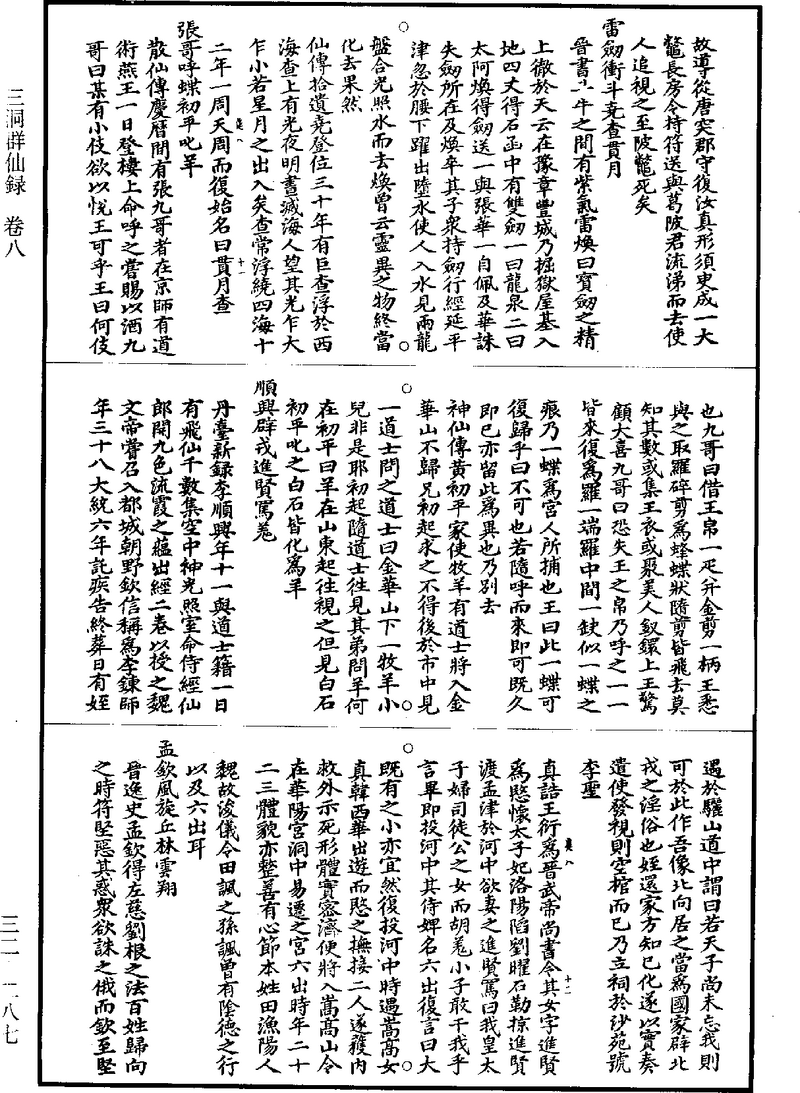 三洞群仙録　卷八
故導從唐突郡守復汝真形須臾成一大
鼈長房令持符送與葛陂君流涕而去使
人追視之至陂鼈死矣
雷劒衝斗堯查貫月
晉書斗牛之間有紫氣雷煥曰寶劒之精
上徹於天云在豫章豐城乃掘獄屋基入
地四丈得石函中有雙劒一曰龍泉二曰
太阿煥得劒送一與張華一自佩及華誅
失劒所在及煥卒其子衆持劒行經延平
津忽於腰下躍出墮水使人入水見兩龍
盤合光照水而去煥曾云靈異之物終當
化去果然
仙傳拾遺堯登位三十年有巨查浮於西
海查上有光夜明晝滅海人望其光乍大
乍小若星月之出入矣查常浮繞四海十
二年一周天周而復始名曰貫月查
張哥呼蝶初平叱羊
散仙傳慶曆間有張九哥者在京師有道
術燕王一日登樓上命呼之嘗賜以酒九
哥曰某有小伎欲以悅王可乎王曰何伎
也九哥曰借王帛一疋并金剪一柄王悉
與之取羅碎剪爲蜂蝶狀隨剪皆飛去莫
知其數或集王衣或聚美人釵鐶上王驚
顧大喜九哥曰恐失王之帛乃呼之一一
皆來復爲羅一端羅中間一缺似一蝶之
痕乃一蝶爲宮人所捕也王曰此一蝶可
復歸乎曰不可也若隨呼而來即可既久
即已亦留此爲異也乃別去
神仙傳黃初平家使牧羊有道士將入金
華山不歸兄初起求之不得後於市中見
一道士問之道士曰金華山下一牧羊小
兒非是耶初起隨道士徃見其弟問羊何
在初平曰羊在山東起徃視之但見白石
初平叱之白石皆化爲羊
順興辟戎進賢罵羗
丹臺新録李順興年十一與道士籍一日
有飛仙千數集空中神光照室命侍經仙
郎開九色流霞之蘊出經二卷以授之魏
文帝嘗召入都城朝野欽信稱爲李鍊師
年三十八大統六年託疾告終葬日有姪
遇於驪山道中謂曰若天子尚未忘我則
可於此作吾像北向居之當爲國家辟北
戎之淫俗也姪還家方知已化遂以實奏
遣使發視則空棺而已乃立祠於沙苑號
李聖
真誥王衍爲晉武帝尚書令其女字進賢
爲愍懷太子妃洛陽陷劉曜石勒掠進賢
渡孟津於河中欲妻之進賢罵曰我皇太
子婦司徒公之女而胡羗小子敢干我乎
言畢即投河中其侍婢名六出復言曰大
既有之小亦宜然復投河中時遇嵩高女
真韓西華出遊而愍之撫接二人遂獲内
救外示死形體實密濟便將入嵩高山今
在華陽宮洞中易遷之宮六出時年二十
二三體貌亦整善有心節本姓田漁陽人
魏故浚儀令田諷之孫諷曾有陰德之行
以及六出耳
孟欽風旋丘林雲翔
晉逸史孟欽得左慈劉根之法百姓歸向
之時符堅惡其惑衆欲誅之俄而欽至堅
三二－二八七